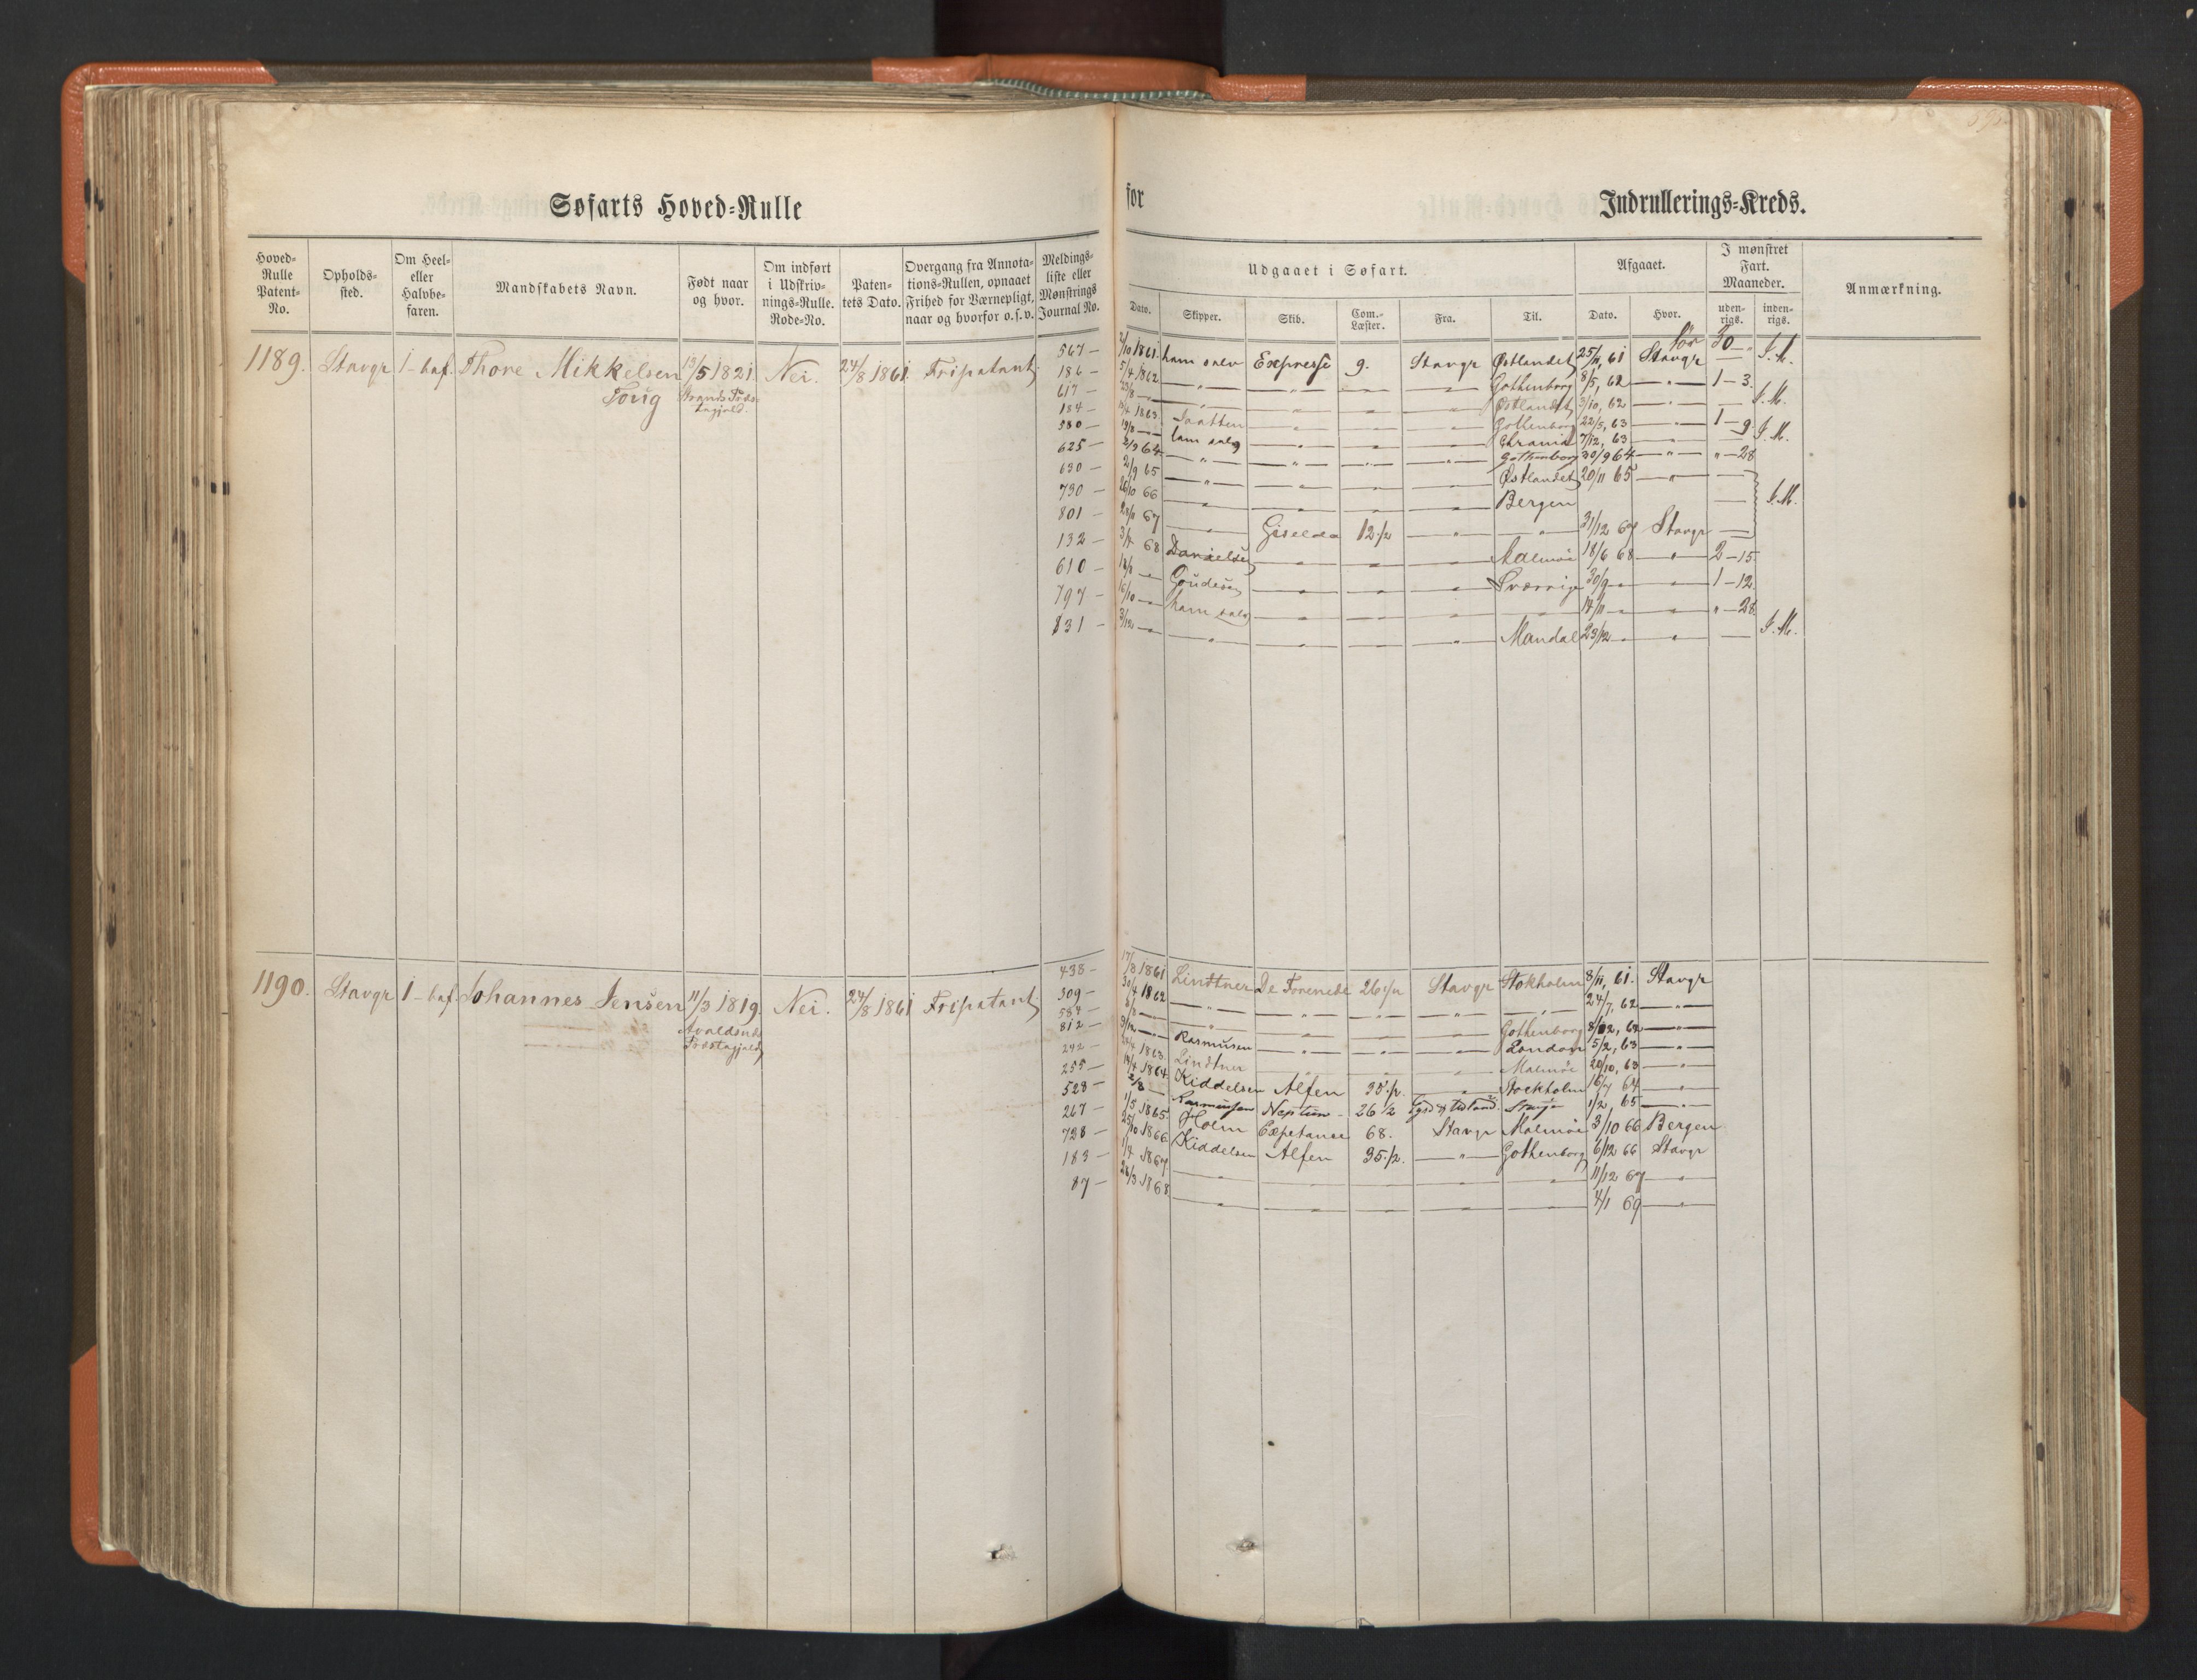 Søfarts Hoved-Rulle
for Indrullerings-Kreds.
Hoved-Rulle Patent-No.
Opholds-sted.
Om Heel- eller Halvbe-faren.
Mandskabets Navn.
Født naar og hvor.
Om indført i Udskriv-nings-Rulle. Rode-No.
Paten-tets Dato.
Overgang fra Annota-tions-Rullen, opnaaet Frihed for Værnepligt, naar og hvorfor o.s.v.
Meldings-liste eller Mønstrings Journal No.
Udgaaet i Søfart.
Afgaaet.
I mønstret Fart. Maaneder.
Anmærkning.
Dato. Skipper. Skib. Com.-Læster. Fra. Til. Dato. Hvor. uden-rigs. inden-rigs.
1189. Stavgr 1-baf. Thore Mikkelsen 13/5 1821. Nei. 24/8 1861. Fripatant
Toug Strands Præs-tagjeld.
567 — 2/10 1861. ham selv Expresse 9. Stavgr Østlandet 25/11, 61 Stavgr 30 — I.M.
186 — 5/4 1862 — " — Gothenborg 8/5, 62 — " — 1 — 3.
617 — Østlandet 3/10, 62 — " — I.M.
184 — 1863. Gothenborg 22/5, 63 — " — 1 — 9
580 — 19/8 — ham selv — Chrania 7/12, 63 — " — I.M.
625 — 2/9 64 — " — Gothenborg 30/9 64 — " — " — 28
630 — 2/9 65 — " — Østlandet 20/11 65 — " —
730 — 26/10 66 — " — Bergen I.M.
801 — 67 — " — Giselda 12 1/2 — " — " — 31/12 67 Stavgr —
132 — 3/4 68 Danielsen — " — Malmøe 18/6 68 — " — 2 — 15.
610 — Goudesen — " — Sverrige 30/9 — " — 1 — 12.
797 — 16/10 — ham selv — " — 14/11 — " — " — 28
831 — 3/12 — " — Mandal 23/12 — " — I.M.
1190. Stavgr 1-baf. Johannes Jensen 11/3 1819. Nei. 24/8 1861 Fripatant.
Avaldsnds Præstagjæld
438 — 17/8 1861 Lindtner De Forenede 26 1/2 Stavgr Stokholm 8/11, 61. Stavgr
309 — 30/4 1862 — " — 24/7, 62 — " —
587 — — " — Gothenborg 8/12, 62 — " —
812 — 9/12 — Rasmusen — " — London 5/2, 63 — " —
242 — 1863. Lindtner — " — Malmöe 20/10, 63 — " —
255 — 14/4 1864. Kiddelsen Alfen 35 1/2. — " — Stockholm 16/7 64 — " —
528 — 2/8 — Rasmussen Neptun — 26 1/2 1/2 65 — " —
267 — 1/5 1865 Holm Exepetance 68. Stavgr Malmöe 3/10 66 Bergen
728 — 25/10 1866. Kiddelsen Alfen 35 1/2. — " — Gothenborg 6/12 66 Stavgr
183 — 1/4 1867 — " — 11/12 67 — " —
87 — 28/3 1868 — " — 4/1 69 — " —